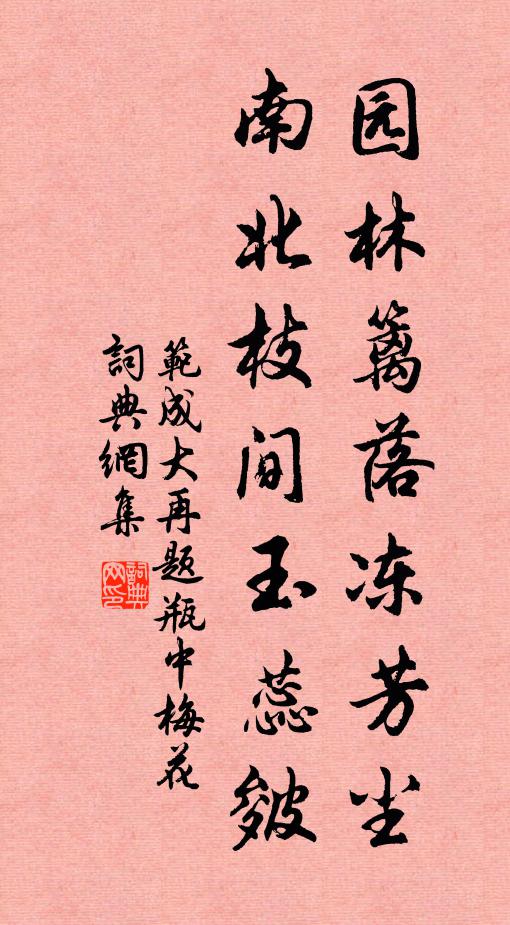 园林篱落冻芳尘
南北枝间玉蕊皴
範成大再题瓶中梅花
詞典網集
詞典
网印